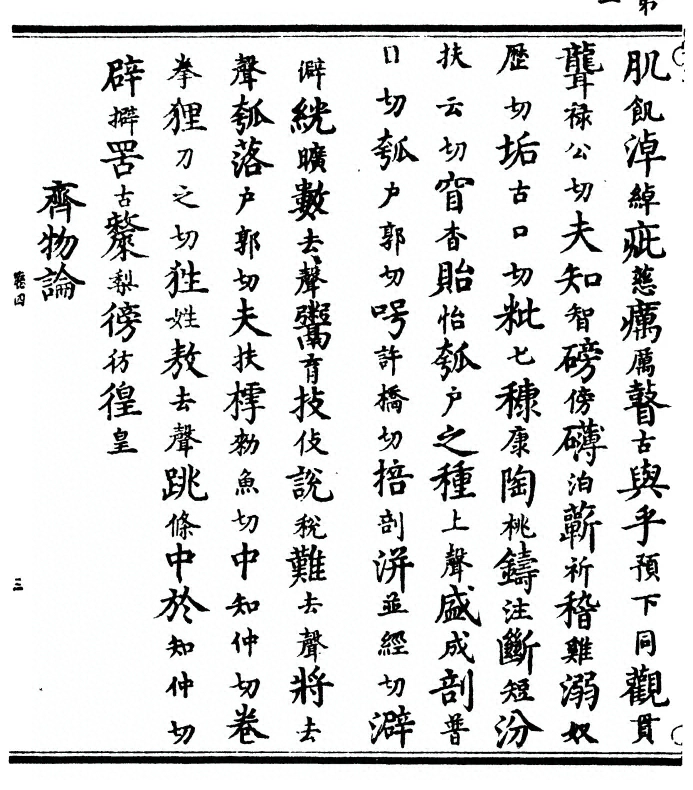 肌飢淖綽疵慈癘厲瞽古與乎預下同觀貫
聾祿公切夫知智磅傍礴泊蘄祈稽雞溺奴
歷切垢古口切粃匕穅康陶桃鑄注斷短汾
扶云切窅杳貽怡瓠户之種上聲盛成剖普
口切瓠户郭切呺許橋切掊剖洴並經切澼
僻絖曠數去聲鬻育技伎說稅難去聲將去
聲瓠落户郭切夫扶樗勑魚切中知仲切卷
拳狸力之切狌姓敖去聲跳條中於知仲切
辟擗罟古斄梨徬彷徨皇
齊物論
卷四
三